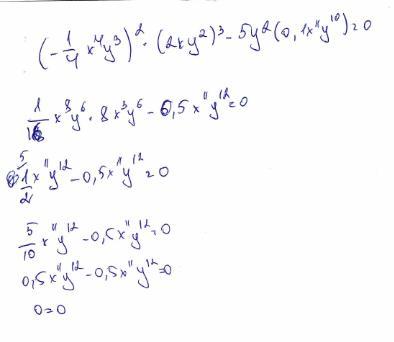 (-1/4 x⁴y³)² · (2xy²)³ - 5y²(0,1x¹¹y¹⁰)=0
1/16 x⁸y⁶ · 8x³y⁶ - 0,5x¹¹y¹²=0
5) 1/2 x¹¹y¹² - 0,5x¹¹y¹² = 0
5/10 x¹¹y¹² - 0,5x¹¹y¹² = 0
0,5x¹¹y¹² - 0,5x¹¹y¹²=0
0=0